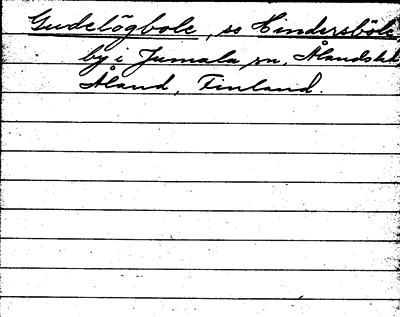 Gudelögbole, so Hindersböle
by i Jomala sn, Ålands hd
Åland, Finland.